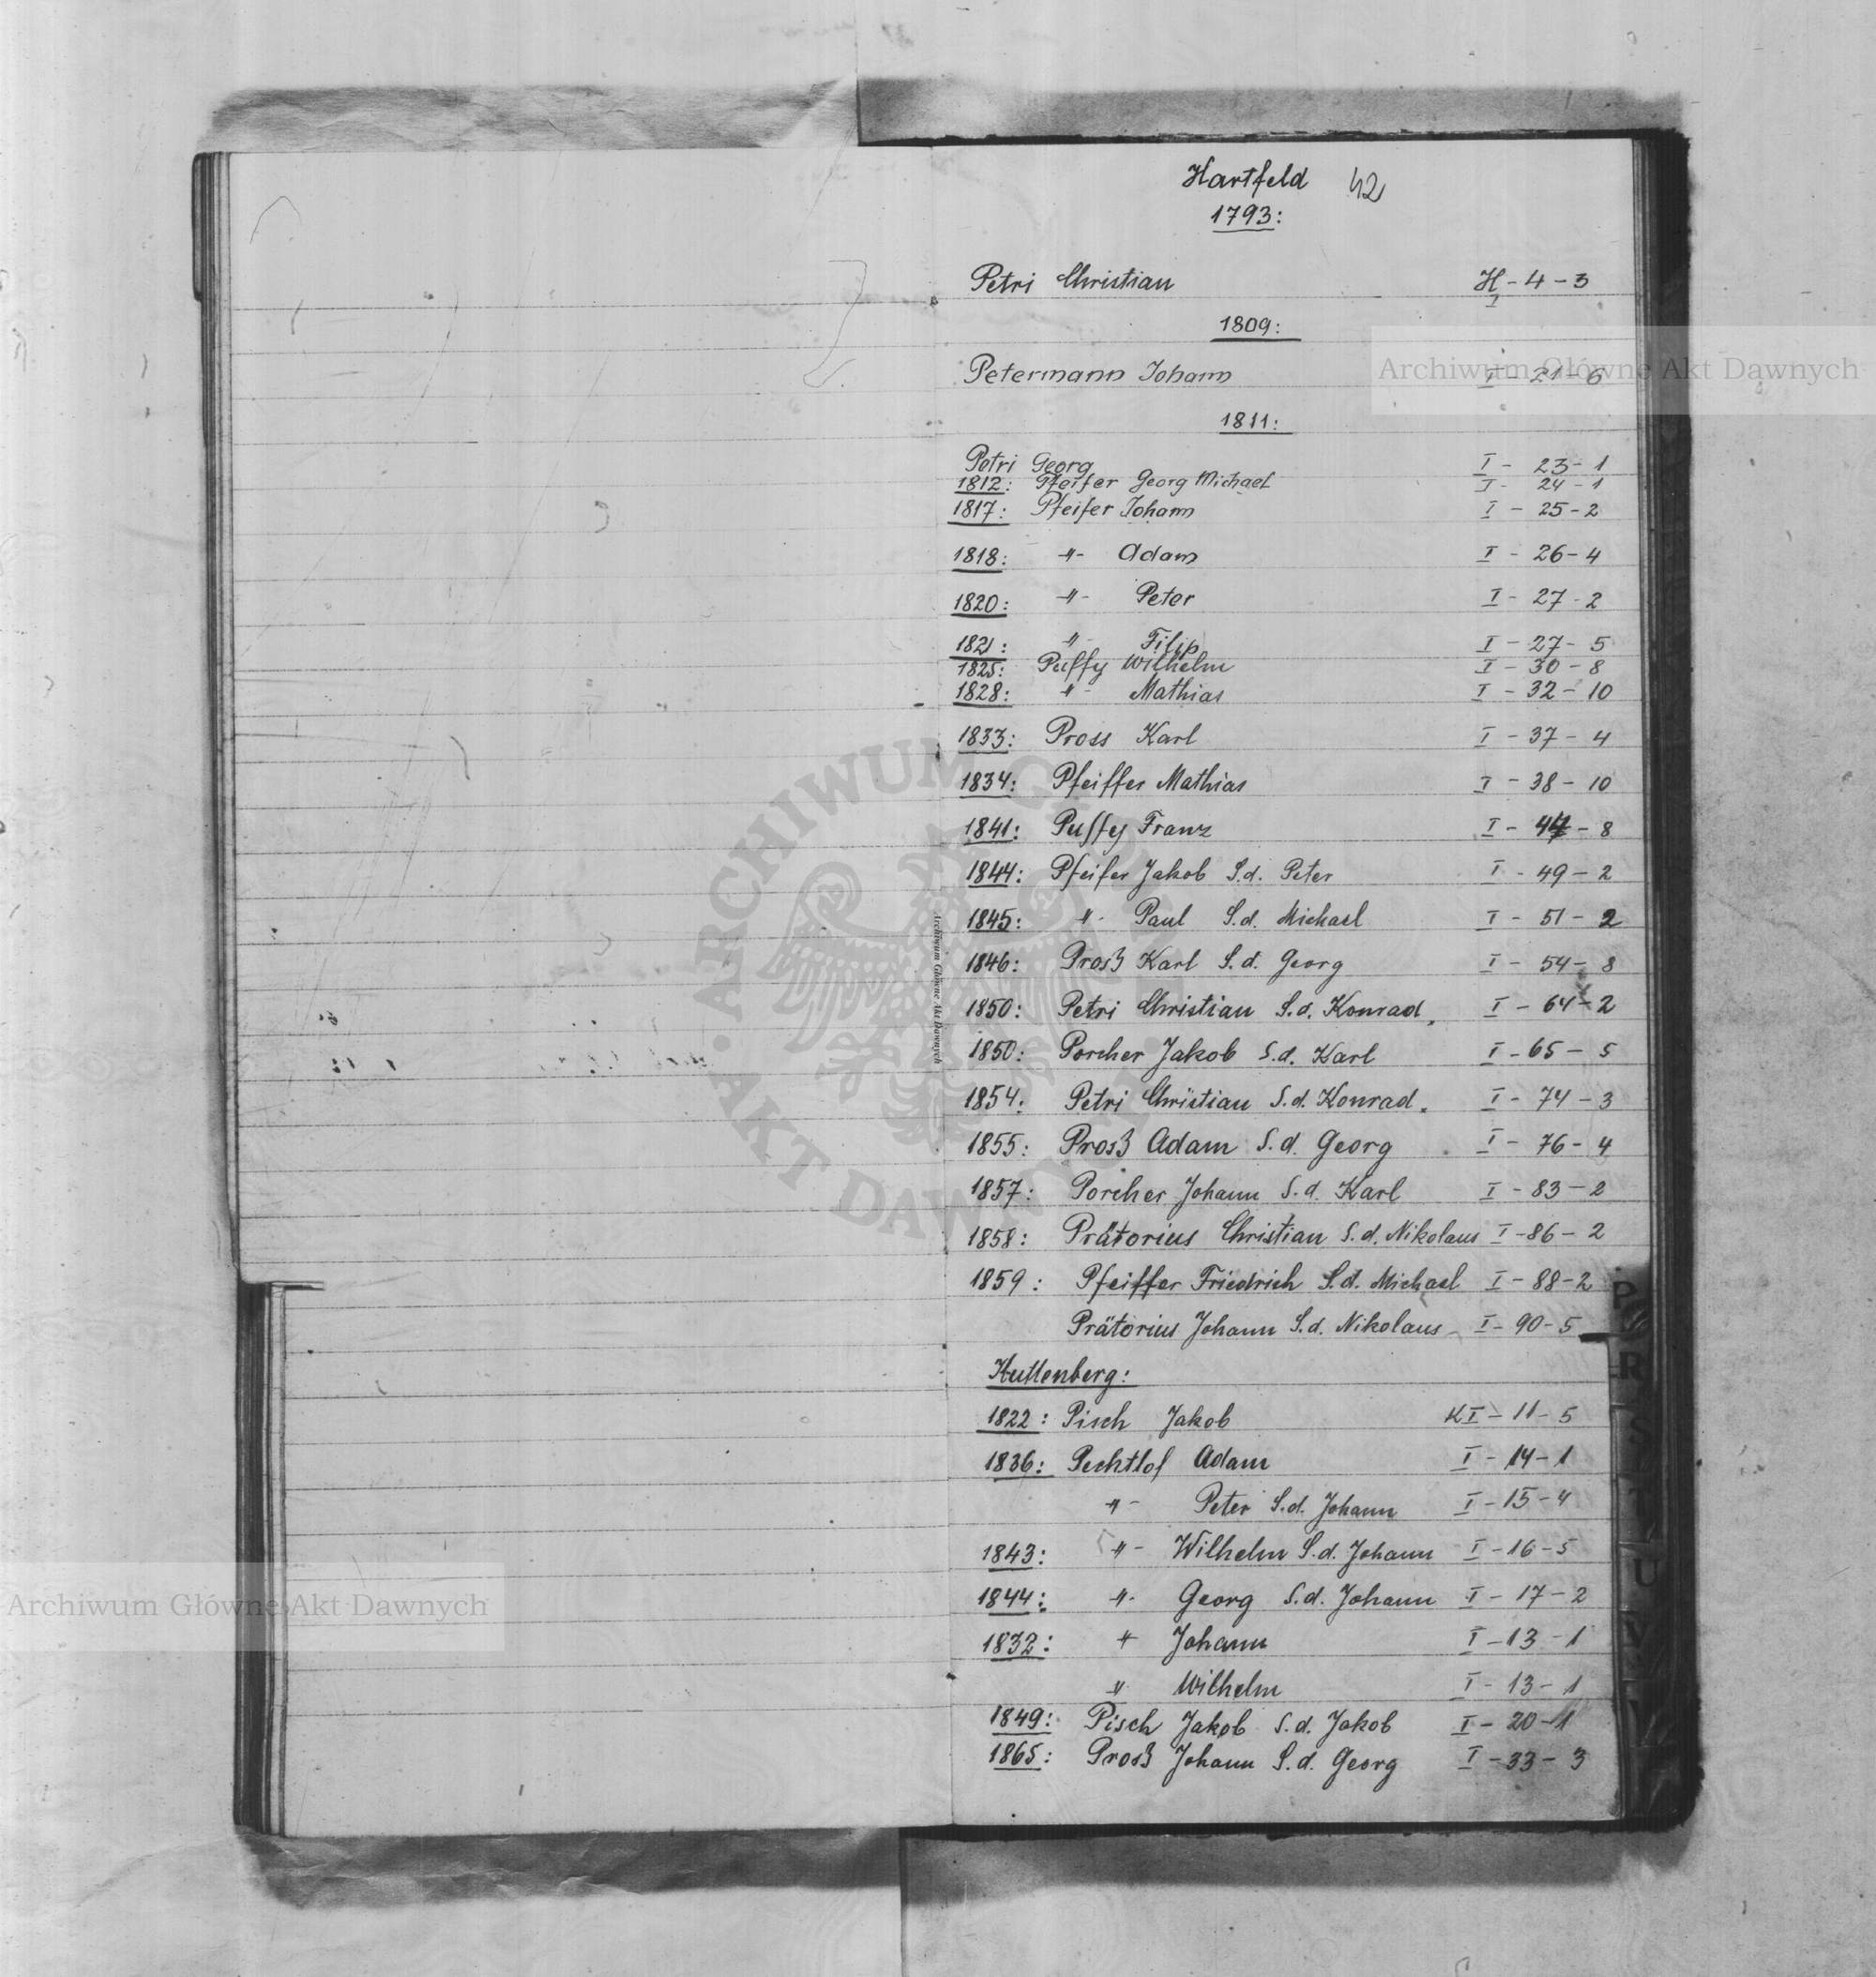 Hartfeld 42
1793:
Petri Christian H I - 4 - 3
1809:
Petermann Johann I - 21 - 6
1811:
Petri Georg I - 23 - 1
1812: Pfeifer Georg Michael I - 24 - 1
1817: Pfeifer Johann I - 25 - 2
1818: -"- Adam I - 26 - 4
1820: -"- Peter I - 27 - 2
1821: -"- Filip I - 27 - 5
1825: Puffy Wilhelm I - 30 - 8
1828: -"- Mathias I - 32 - 10
1833: Pross Karl I - 37 - 4
1834: Pfeiffer Mathias I - 38 - 10
1841: Puffy Franz I - 44 - 8
1844: Pfeifer Jakob S.d. Peter I - 49 - 2
1845: -"- Paul S.d. Michael I - 51 - 2
1846: Proß Karl S.d. Georg I - 54 - 8
1850: Petri Christian S.d. Konrad. I - 64 - 2
1850: Porcher Jakob S.d. Karl I - 65 - 5
1854: Petri Christian S.d. Konrad. I - 74 - 3
1855: Proß Adam S.d. Georg I - 76 - 4
1857: Porcher Johann S.d. Karl I - 83 - 2
1858: Prätorius Christian S.d. Nikolaus I - 86 - 2
1859: Pfeiffer Friedrich S.d. Michael I - 88 - 2
Prätorius Johann S.d. Nikolaus I - 90 - 5
Kuttenberg:
1822: Pisch Jakob K I - 11 - 5
1836: Pechtlof Adam I - 14 - 1
-"- Peter S.d. Johann I - 15 - 4
1843: -"- Wilhelm S.d. Johann I - 16 - 5
1844: -"- Georg S.d. Johann I - 17 - 2
1832: " Johann I - 13 - 1
" Wilhelm I - 13 - 1
1849: Pisch Jakob S.d. Jakob I - 20 - 1
1865: Proß Johann S.d. Georg I - 33 - 3
P
R
S
T
U
V
Archiwum Główne Akt Dawnych
Archiwum Główne Akt Dawnych
Archiwum Główne Akt Dawnych
ARCHIWUM GŁÓWNE
AKT DAWNYCH